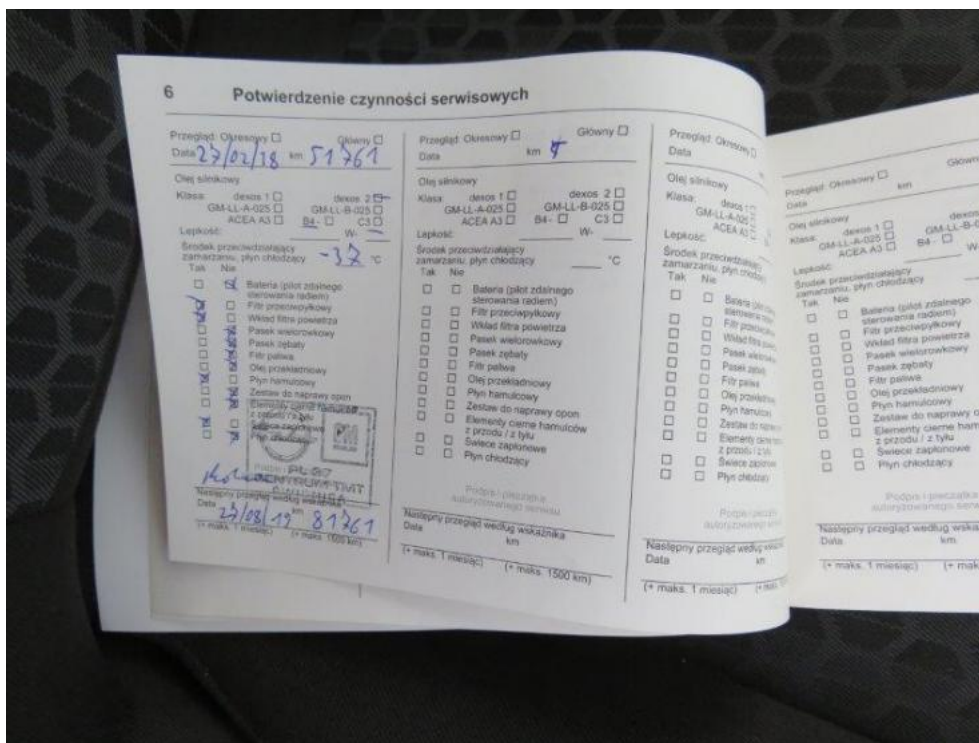 6 Potwierdzenie czynności serwisowych
Przegląd: Okresowy ☐ Główny ☐
Data 27/02/18 km 51761
Olej silnikowy
Klasa: dexos 1 ☐ dexos 2 ☐
GM-LL-A-025 ☐ GM-LL-B-025 ☐
ACEA A3 ☐ B4- ☐ C3 ☐
Lepkość: W-
Środek przeciwdziałający
zamarzaniu, płyn chłodzący -37 °C
Tak Nie
Bateria (pilot zdalnego
sterowania radiem)
Filtr przeciwpyłkowy
Wkład filtra powietrza
Pasek wielorowkowy
Pasek zębaty
Filtr paliwa
Olej przekładniowy
Płyn hamulcowy
Zestaw do naprawy opon
Elementy cierne hamulców
z przodu / z tyłu
Świece zapłonowe
Płyn chłodzący
PL97
CENTRUM TMT
Następny przegląd według wskaźnika
Data 27/08/19 km 81761
(+ maks. 1 miesiąc) (+ maks. 1500 km)
Przegląd: Okresowy ☐ Główny ☐
Data km
Olej silnikowy
Klasa: dexos 1 ☐ dexos 2 ☐
GM-LL-A-025 ☐ GM-LL-B-025 ☐
ACEA A3 ☐ B4- ☐ C3 ☐
Lepkość: W-
Środek przeciwdziałający
zamarzaniu, płyn chłodzący °C
Tak Nie
Bateria (pilot zdalnego
sterowania radiem)
Filtr przeciwpyłkowy
Wkład filtra powietrza
Pasek wielorowkowy
Pasek zębaty
Filtr paliwa
Olej przekładniowy
Płyn hamulcowy
Zestaw do naprawy opon
Elementy cierne hamulców
z przodu / z tyłu
Świece zapłonowe
Płyn chłodzący
Podpis i pieczątka
autoryzowanego serwisu
Następny przegląd według wskaźnika
Data km
(+ maks. 1 miesiąc) (+ maks. 1500 km)
Przegląd: Okresowy ☐
Data
Olej silnikowy
Klasa: dexos 1
GM-LL-A-025
ACEA A3 ☐
Lepkość:
Środek przeciwdziałający
zamarzaniu, płyn
Tak Nie
Bateria
sterowania
Filtr
Wkład filtra
Pasek
Pasek zębaty
Filtr paliwa
Olej
Płyn hamulcowy
Zestaw do
Elementy cierne
z przodu / z tyłu
Świece zapłonowe
Płyn chłodzący
Następny przegląd według
Data km
(+ maks. 1 miesiąc)
Przegląd: Okresowy ☐
Data km
Olej silnikowy
Klasa: dexos 1 ☐
GM-LL-A-025 ☐
ACEA A3 ☐ B4- ☐
Lepkość:
Środek przeciwdziałający
zamarzaniu, płyn chłodzący
Tak Nie
Bateria (pilot zdalnego
sterowania radiem)
Filtr przeciwpyłkowy
Wkład filtra powietrza
Pasek wielorowkowy
Pasek zębaty
Filtr paliwa
Olej przekładniowy
Płyn hamulcowy
Zestaw do naprawy
Elementy cierne
z przodu / z tyłu
Świece zapłonowe
Płyn chłodzący
Podpis i pieczątka
autoryzowanego
Następny przegląd według wskaźnika
Data km
(+ maks. 1 miesiąc)